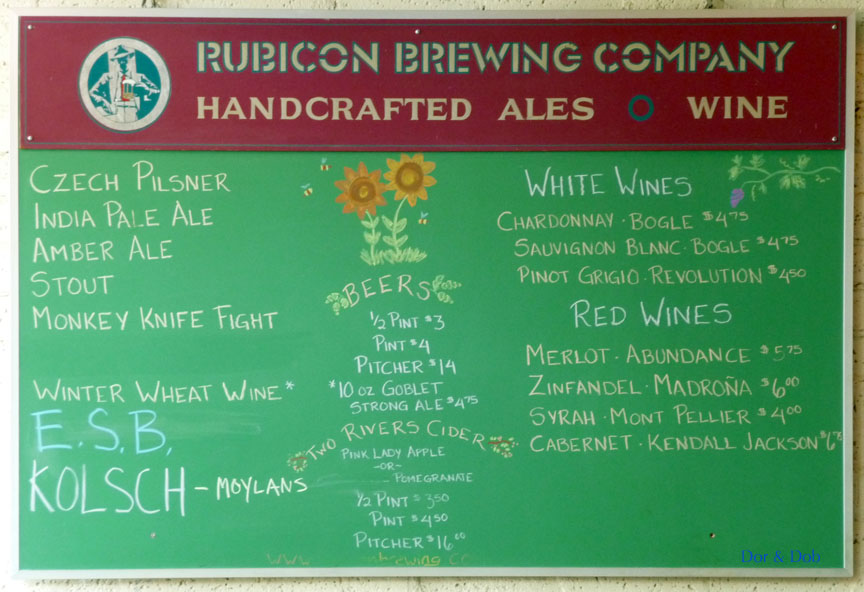 RUBICON BREWING COMPANY
HANDCRAFTED ALES O WINE
CZECH PILSNER
INDIA PALE ALE
AMBER ALE
STOUT
MONKEY KNIFE FIGHT
WINTER WHEAT WINE*
E.S.B.
KOLSCH - MOYLANS
BEERS
1/2 PINT $3
PINT $4
PITCHER $14
*10 OZ GOBLET
STRONG ALE $4.75
TWO RIVERS CIDER
PINK LADY APPLE
-OR-
POMEGRANATE
1/2 PINT $3.50
PINT $4.50
PITCHER $16.00
WHITE WINES
CHARDONNAY · BOGLE $4.75
SAUVIGNON BLANC · BOGLE $4.75
PINOT GRIGIO · REVOLUTION $4.50
RED WINES
MERLOT · ABUNDANCE $5.75
ZINFANDEL · MADROÑA $6.00
SYRAH · MONT PELLIER $4.00
CABERNET · KENDALL JACKSON $6.75
Dor & Dob